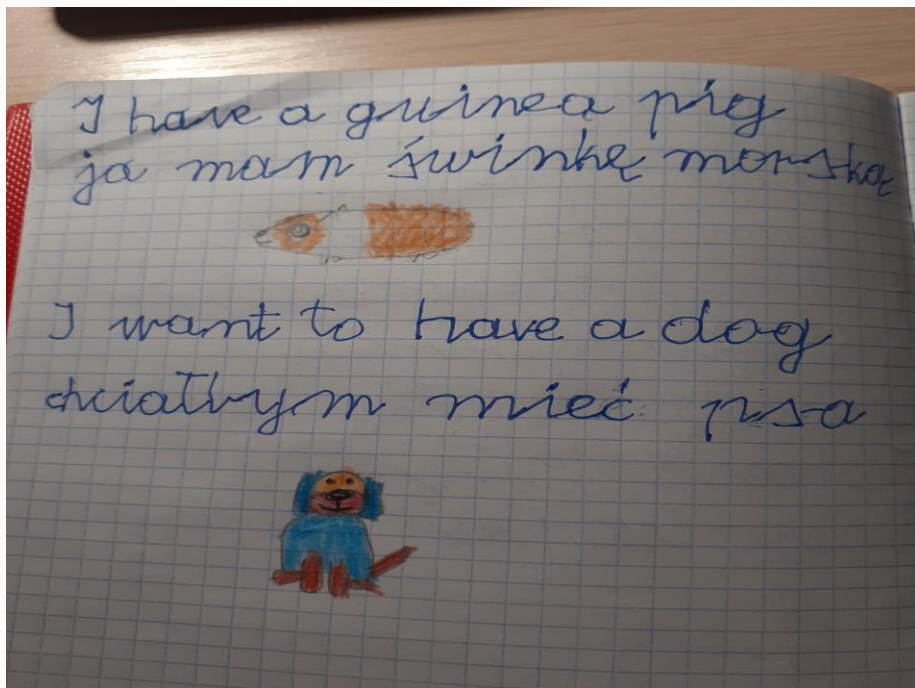 I have a guinea pig
ja mam świnkę morską
I want to have a dog
chciałbym mieć psa